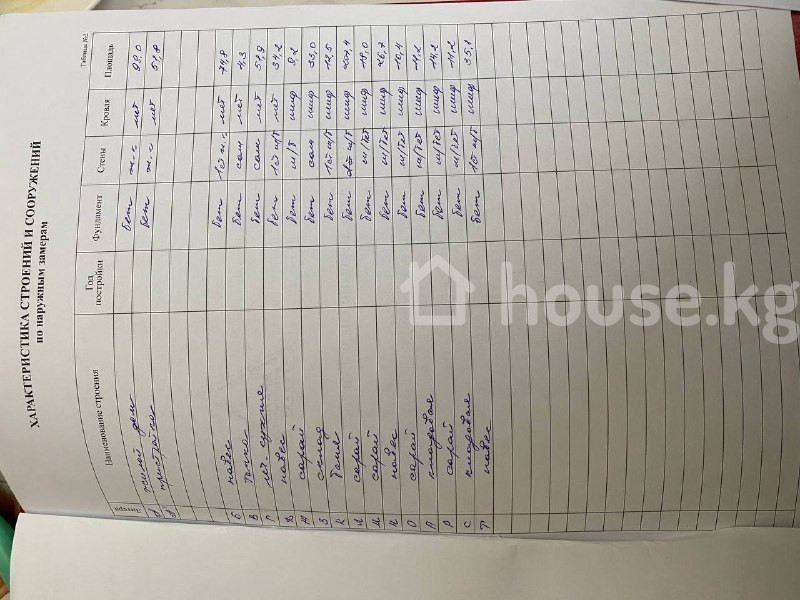 ХАРАКТЕРИСТИКА СТРОЕНИЙ И СООРУЖЕНИЙ
по наружным замерам
Таблица №2
Наименование строения Год постройки Фундамент Стены Кровля Площадь
жилой дом бет ж.с мет 98,0
пристройка бет ж.с мет 51,8
Б навес бет мет 74,8
В топка бет сам мет 4,3
Г лет. кухня бет сам мет 57,9
Д навес бет мет 34,2
Ж сарай бет шиф 9,2
З склад бет сам шиф 33,0
К баня бет шиф 12,5
Л сарай бет шиф 201,4
М сарай бет шиф 18,0
Н навес бет шиф 26,7
О сарай бет шиф 10,4
П кладовая бет шиф 11,2
Р сарай бет шиф 14,2
С кладовая бет шиф 11,2
Т навес бет шиф 35,1
house.kg